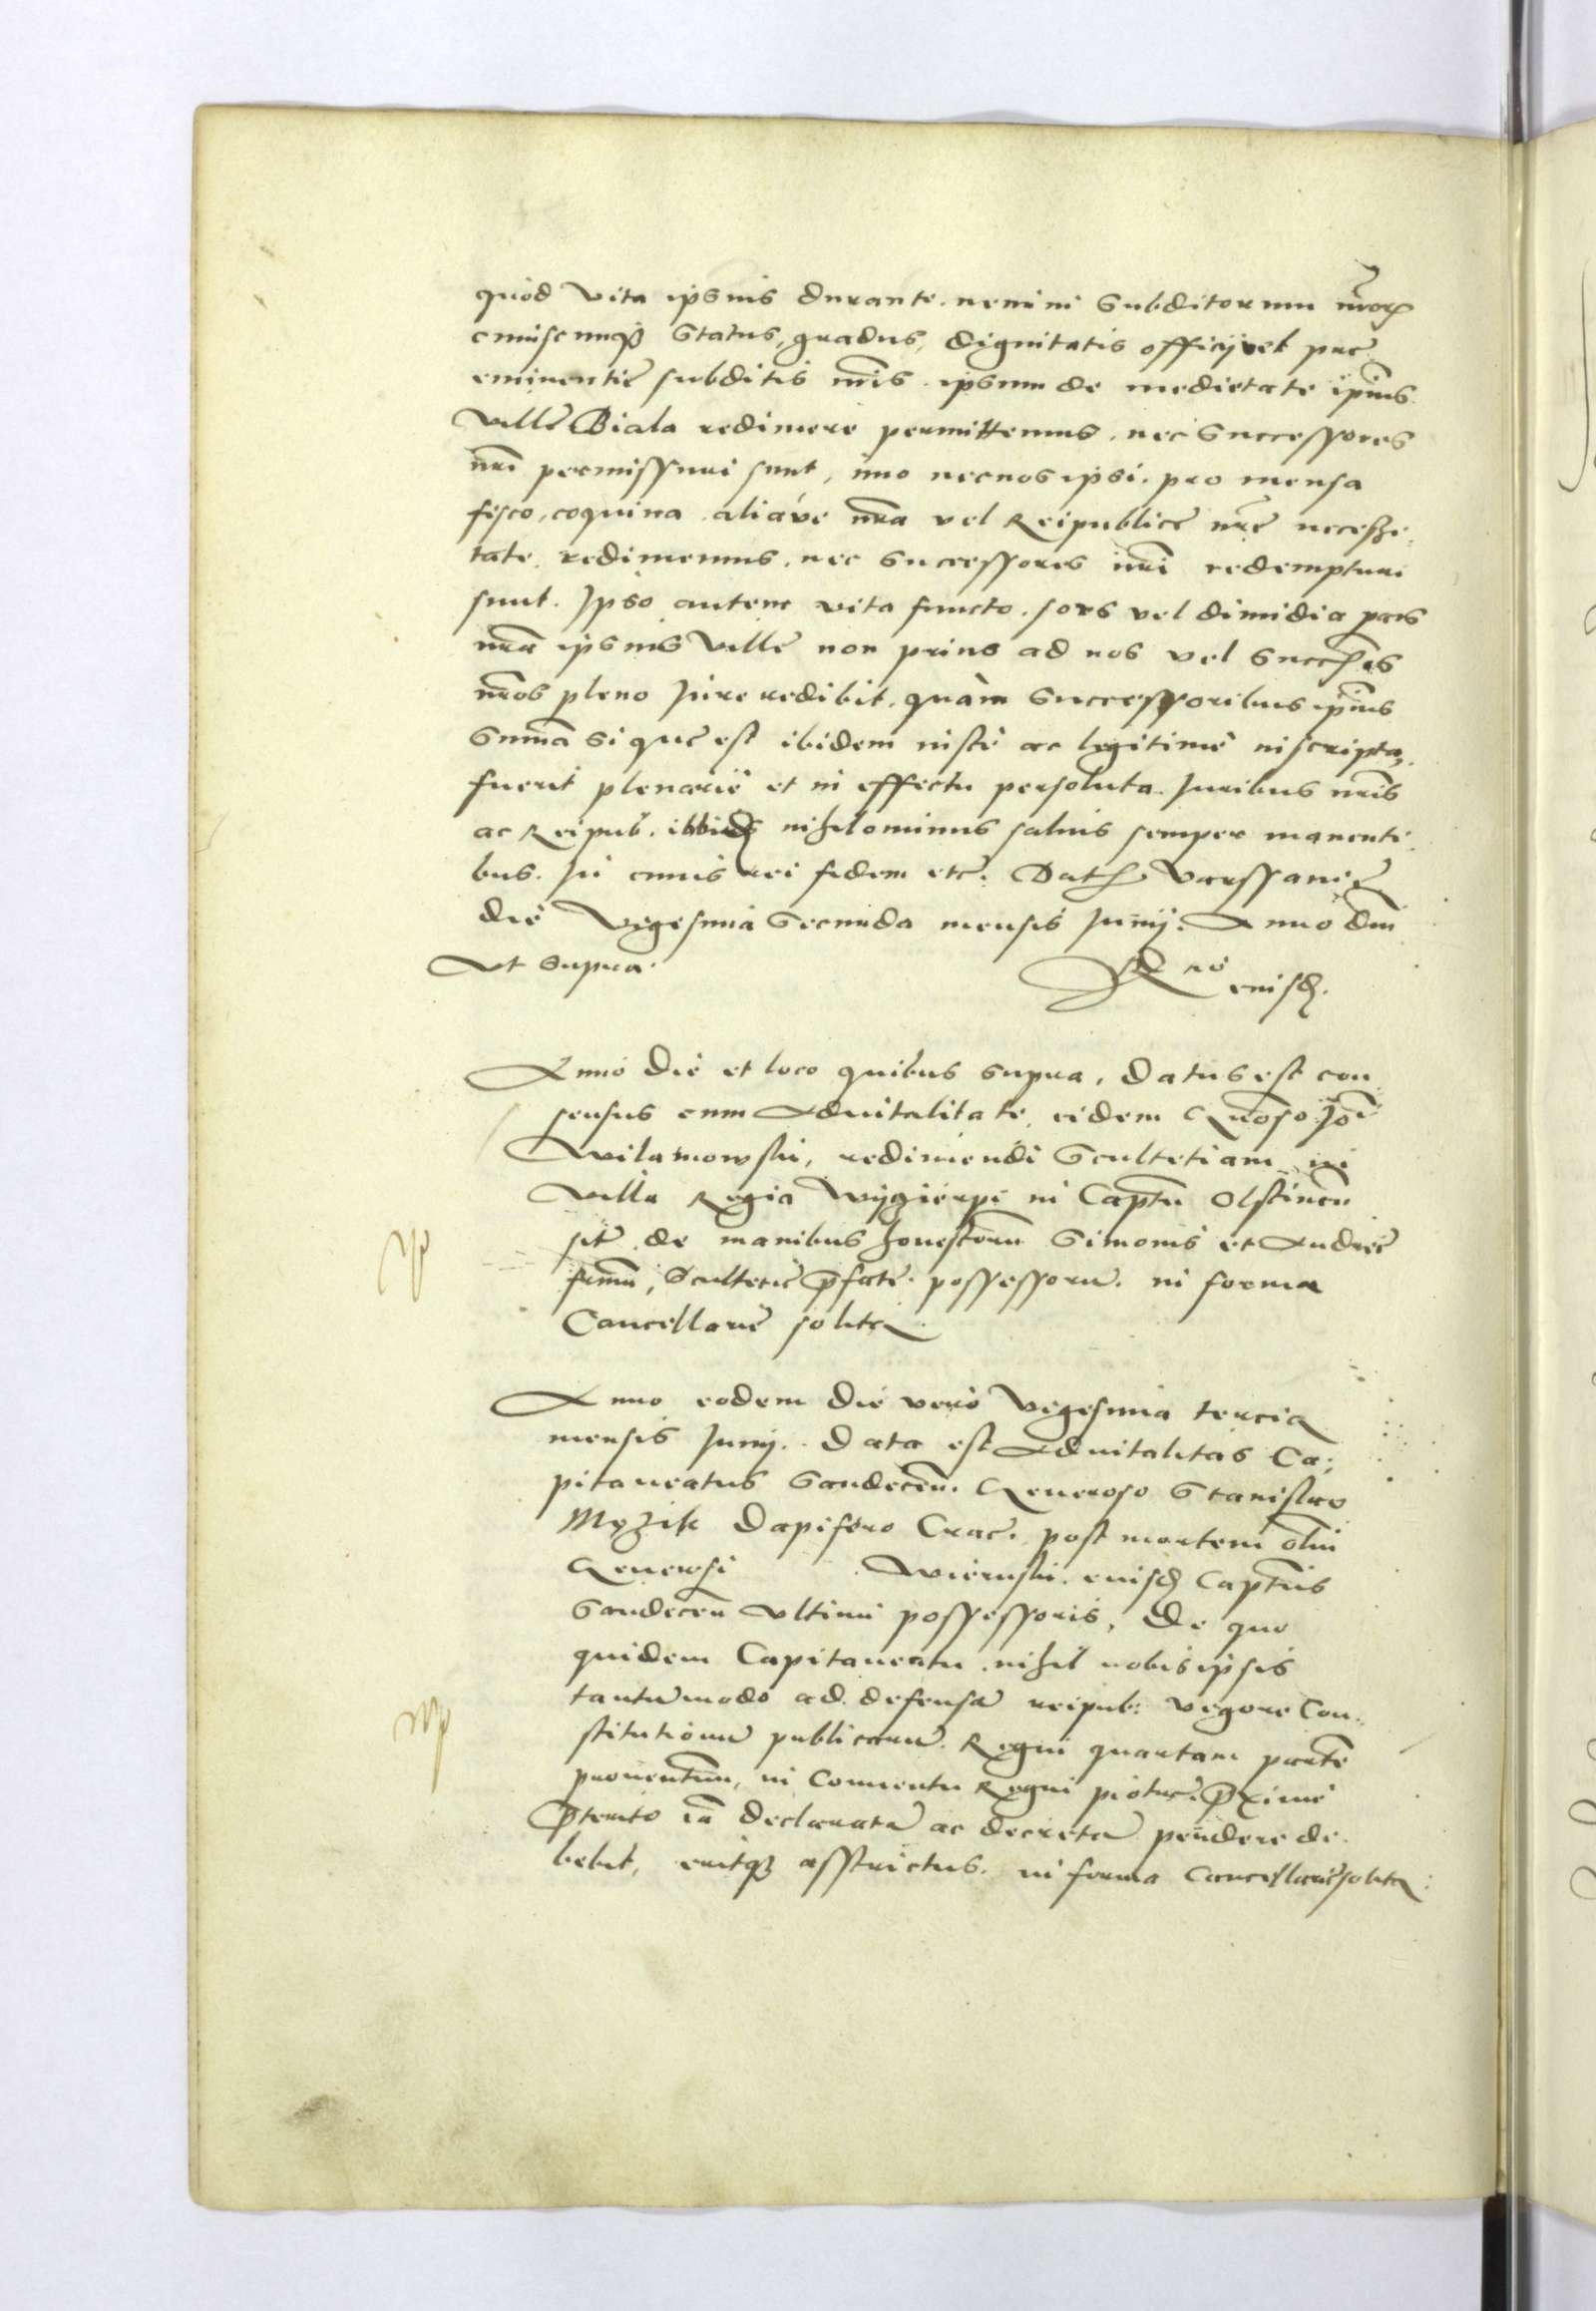 quod vita ipsius durante nemini subditorum nror
cuiuscunq status, gradus, dignitatis officij vel pre
eminentie subditis nris ipsum de medietate ipius
ville Biala redimere permittemus. nec successores
nri permissuri sunt, imo nec nos ipsi pro mensa
fisco, coquina aliave nra vel Reipublice nre necessi
tate redimemus. nec successores nri redempturi
sunt. Ipso autem vita functo. sors vel dimidia pars
nra ipsius ville non prius ad nos vel succes
nros pleno Iure redibit, quàm successoribus ipius
summa si que est ibidem iuste ac legitime inscripta
fuerit plenarie et in effectu persoluta. Iuribus nris
ac Reipub. nihilominus salvis semper manenti
bus. In cuius rei fidem etc. Dat Varssavie
die vigesima secunda mensis Iunij. Anno dni
ut supra.
Ro eiusd.
Anno die et loco quibus supra, datus est con
sensus cum advitalitate eidem Gnoso Joi
Wilamowski, redimendi scultetiam in
villa Regia in Captu Olstinen
sit de manibus honestorum Simonis et Andree
frmu, Scultetie pfate possessoru. in forma
Cancellarie solita
Anno eodem die vero vigesima tercia
mensis Iunij. Data est advitalitas Ca,
pitaneatus Sandecen. Generoso Stanislao
Mężik Dapifero Crac. post mortem olim
Generosi Wieruski. eiusd Captus
Sandecen ultimi possessoris. De quo
quidem Capitaneatu nihil nobis ipsis
tantumodo ad defensa reipub: vigore Con,
stitutionu publicaru Regni quartam parte
proventum, in Conventu Regni piotrc. pxime
pterito ia declarata ac decreta pendere de
bebit, eritq astrictus. in forma Cancellarie solita